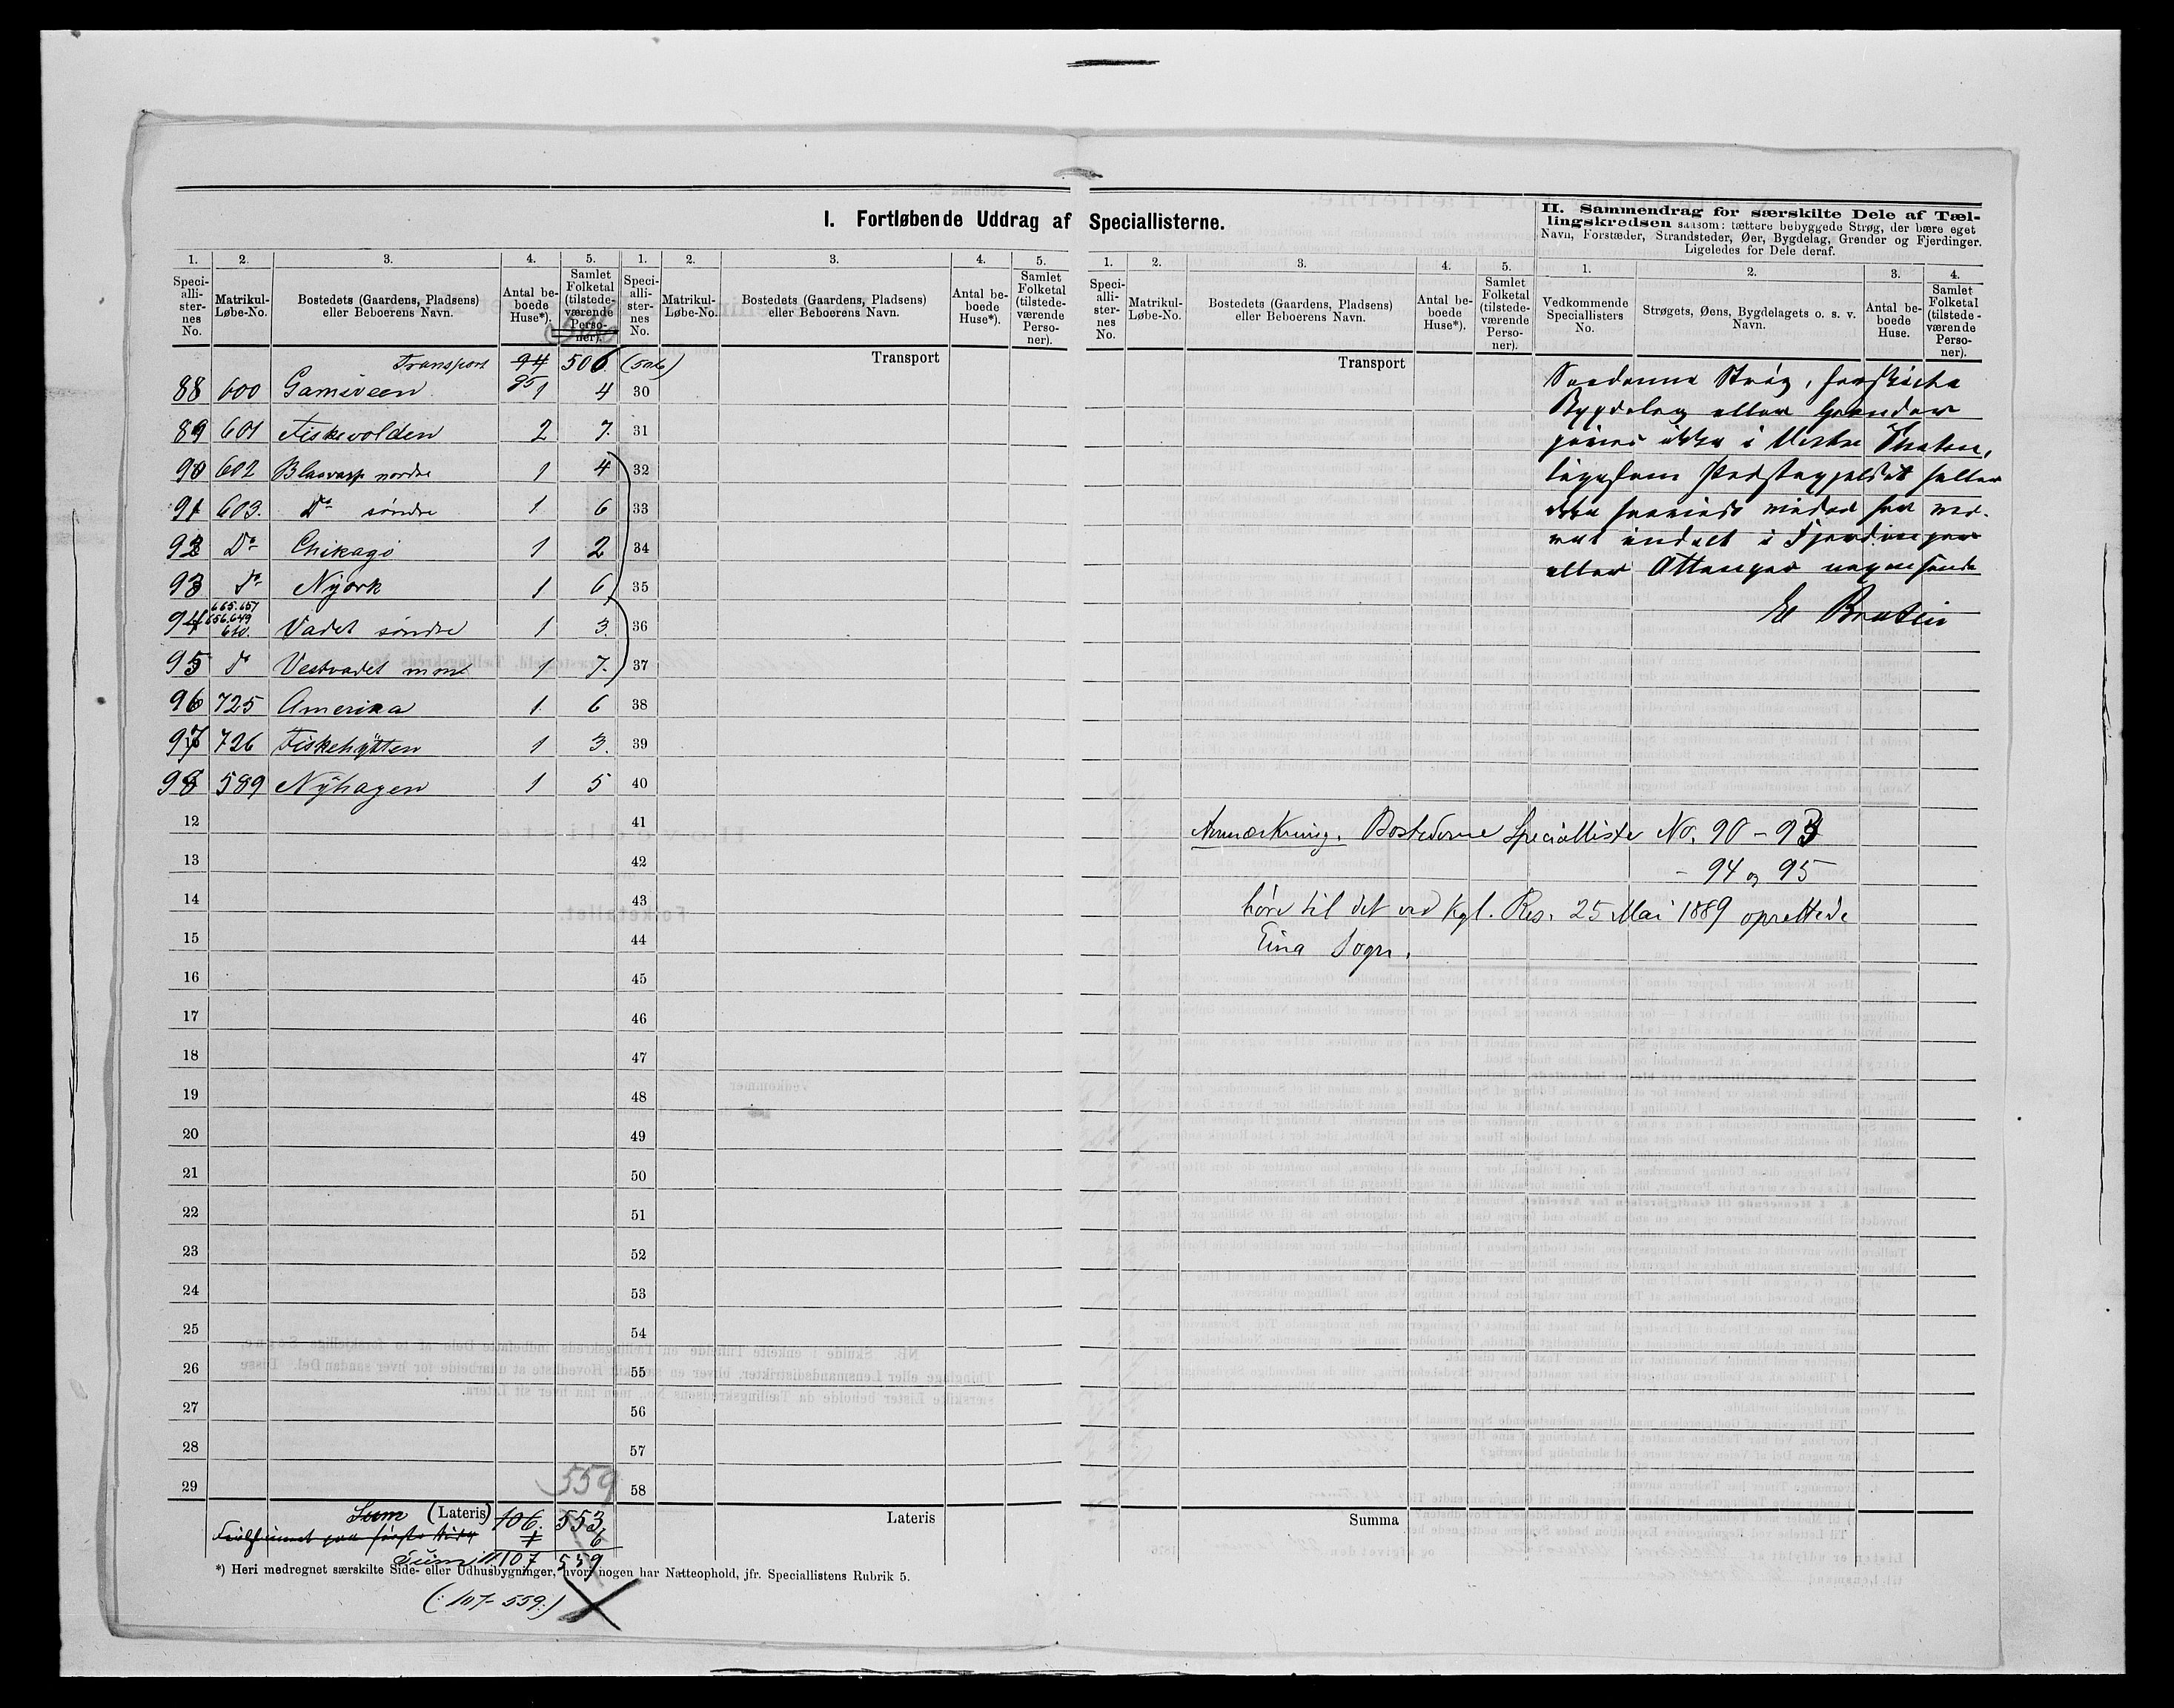 I. Fortløbende Uddrag af Speciallisterne.
II. Sammendrag for særskilte Dele af Tæl-
lingskredsen saasom: tættere bebyggede Strøg, der bære eget
Navn, Forstæder, Strandsteder, Øer, Bygdelag, Grender og Fjerdinger.
Ligeledes for Dele deraf.
1. 2. 3. 4. 5. 1. 2. 3. 4. 5.
Speci-alli-ster-nes No. Matrikul-Løbe-No. Bostedets (Gaardens, Pladsens) eller Beboerens Navn. Antal be-boede Huse*). Samlet Folketal (tilstede-værende Perso-ner).
Speci-alli-ster-nes No. Matrikul-Løbe-No. Bostedets (Gaardens, Pladsens) eller Beboerens Navn. Antal be-boede Huse*). Samlet Folketal (tilstede-værende Perso-ner).
Transport 94 506 (506) Transport
95
88 600 1 4 30
89 601 Fiskevolden 2 7. 31
90 602 Blaavarp nordre 1 4 32
91 603. Do søndre 1 6 33
92 Do Chikago 1 2 34
93 Do Nyork 1 6 35
665.657
656.649
94 640. Vadet søndre 1 3. 36
95 Do Vestvadet 1 7. 37
96 725 Amerika 1 6 38
97 726 Fiskehytten 1 3. 39
98 589 Nÿhagen 1 5 40
12 41
13 42
14 43
15 44
16 45
17 46
18 47
19 48
20 49
21 50
22 51
23 52
24 53
25 54
26 55
27 56
28 57
559
29 58
Sum (Lateris) 106. 553 Lateris
1 6
Sum 107 559
*) Heri medregnet særskilte Side- eller Udhusbygninger, hvori nogen har Natteophold, jfr. Speciallistens Rubrik 5.
(: 107 - 559:)
1. 2. 3. 4. 5. 1. 2. 3. 4.
Speci-alli-ster-nes No. Matrikul-Løbe-No. Bostedets (Gaardens, Pladsens) eller Beboerens Navn. Antal be-boede Huse*). Samlet Folketal (tilstede-værende Perso-ner).
Vedkommende Speciallisters No. Strøgets, Øens, Bygdelagets o. s. v. Navn. Antal be-boede Huse. Samlet Folketal (tilstede-værende Perso-ner).
Transport
Saadanne Strøg, særskilte
Bygdelag eller Grender
ikke i Vestre Thoten,
ligesom Præstegjeldet heller
ikke
inddelt i Fjerdinger
eller Attinger
E Braten
Anmærkning. Bostederne Specialliste No. 90 - 93
- 94 og 95
høre til det ved Kgl. Res. 25 Mai 1889 oprettede
Eina Sogn.
Summa